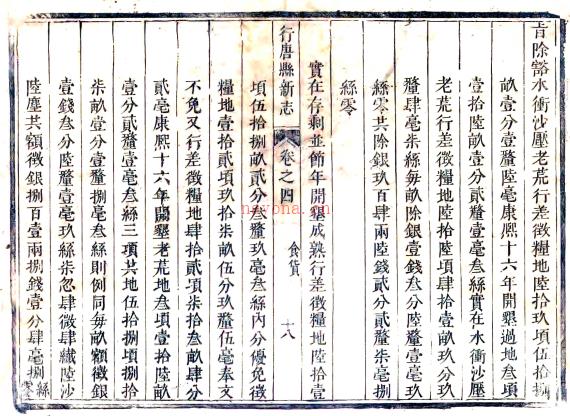 旨除豁水衝沙壓老荒行差徵糧地陸拾玖項伍拾捌
畝壹分壹釐陸毫康熙十六年開墾過地叁項
壹拾陸畝壹分貳釐壹毫叁絲實在水衝沙壓
老荒行差徵糧地陸拾陸項肆拾壹畝玖分玖
釐肆毫柒絲每畝除銀壹錢叁分陸釐壹毫玖
絲零共除銀玖百肆兩陸錢貳分貳釐柒毫捌
絲零
實在存剩並節年開墾成熟行差徵糧地陸拾壹
行唐縣新志 卷之四 食貨 十八
項伍拾捌畝貳分叁釐玖毫叁絲內分優免徵
糧地壹拾貳項玖拾柒畝伍分玖釐伍毫奉文
不免又行差徵糧地肆拾貳項柒拾叁畝肆分
貳毫康熙十六年開墾老荒地叁項壹拾陸畝
壹分貳釐壹毫叁絲三項共地伍拾捌項捌拾
柒畝壹分壹釐捌毫叁絲則例同每畝額徵銀
壹錢叁分陸釐壹毫玖絲柒忽肆微肆纖陸沙
陸塵共額徵銀捌百壹兩捌錢壹分肆毫捌絲零
nayona.cn